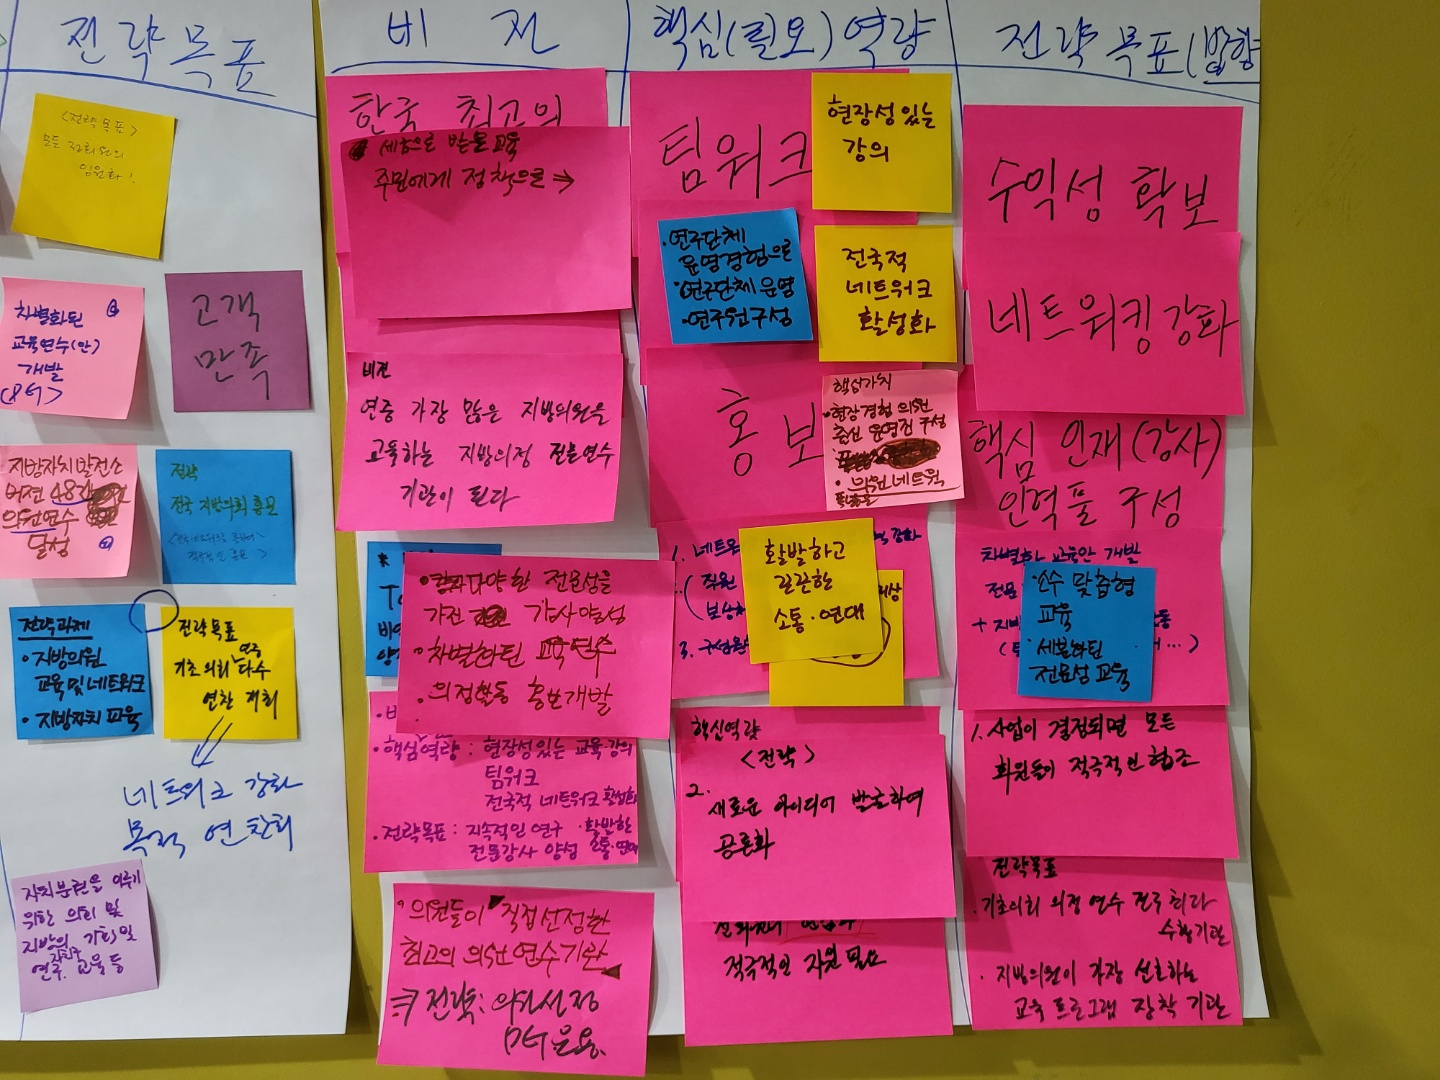 전략목표
<전략목표>
모든
차별화된
교육연수(안)
개발
고객
만족
지방자치발전소
버전 48
의원연수
달성
전략
전국 지방의회 홍보
전략과제
·지방의원
교육 및 네트워크
·지방자치 교육
전략목표
연중
기초의회 다수
연찬 개최
네트워크 강화
목적 연찬회
자치분권을 이루기
위한 의회 및
지방의
자치
연구. 교육 등
비전
한국 최고의
세금으로 받은 교육
주민에게 정책으로 →
비전
연중 가장 많은 지방의원을
교육하는 지방의정 전문연수
기관이 된다
다양한 전문성을
가진 강사양성
·차별화된 교육연수
·의정활동 홍보개발
·핵심역량 : 현장성있는 교육·강의
팀워크
전국적 네트워크 활성화
·전략목표 : 지속적인 연구 ·활발한
전문강사 양성 소통·연대
·의원들이 직접선정한
최고의 의원연수기관
⇒ 전략: 의원선정
핵심(필요)역량
팀워크
현장성있는
강의
·연구단체
운영경험으로
·연구단체 운영
·연구원구성
전국적
네트워크
활성화
홍보
핵심가치
·현장경험 의원
출신 운영진 구성
·의원네트워크
1. 네트워
강화
(직원
보상
3. 구성원
활발하고
끈끈한
소통·연대
핵심역량
<전략>
2. 새로운 아이디어 발출하여
공론화
적극적인 지원 필요
전략목표(방향
수익성 확보
네트워킹강화
핵심 인재(강사)
인력풀 구성
차별화 교육안 개발
전문
+ 지방
·소수 맞춤형
교육
·세분화된
전문성교육
1. 사업이 결정되면 모든
회원들이 적극적인 협조
전략목표
·기초의회 의정 연수 전국 최다
수행기관
·지방의원이 가장 선호하는
교육 프로그램 장착 기관